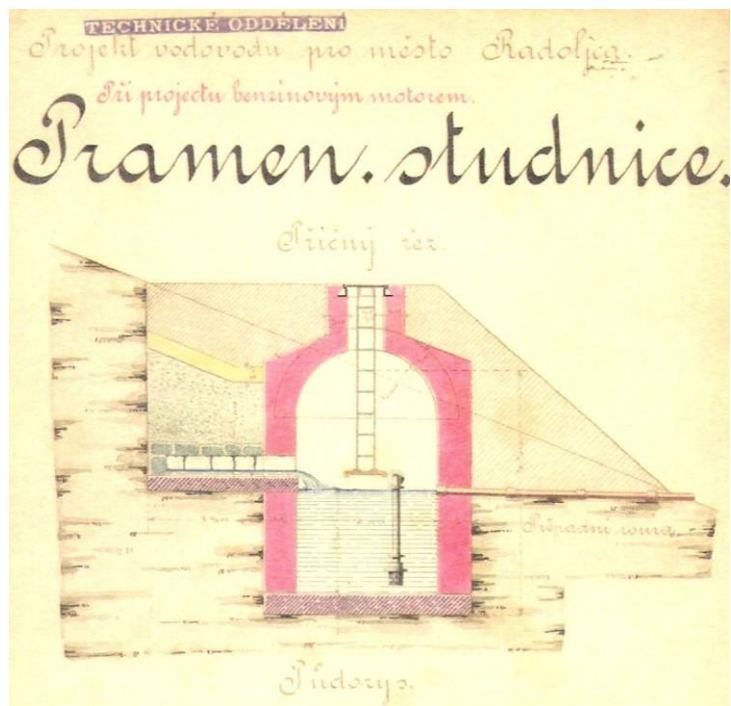 TECHNICKÉ ODDĚLENÍ
Projekt vodovodu pro město Radoljca.
Při projectu benzinovým motorem.
Pramen. studnice.
Příčný řez.
roura
Půdorys.